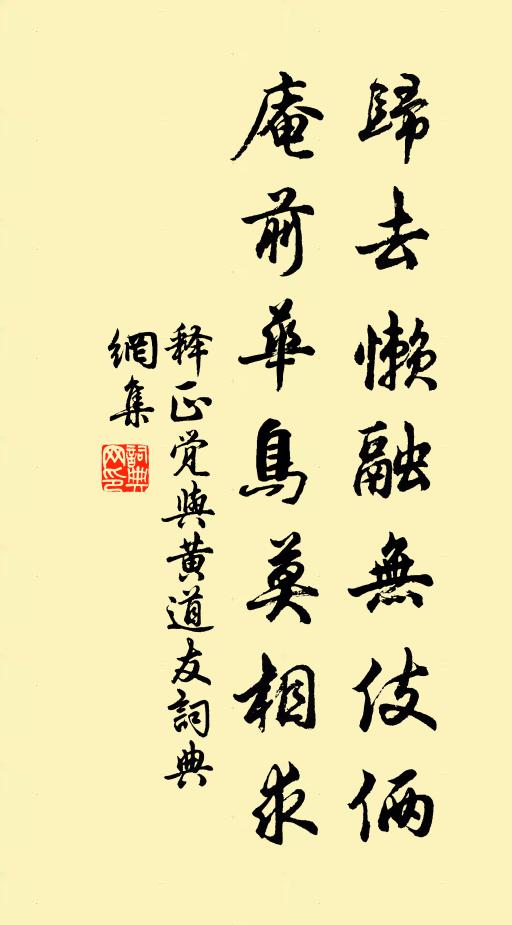 歸去懶融無伎倆
庵前華鳥莫相求
释正觉與黄道友詞典
網集
詞典網印